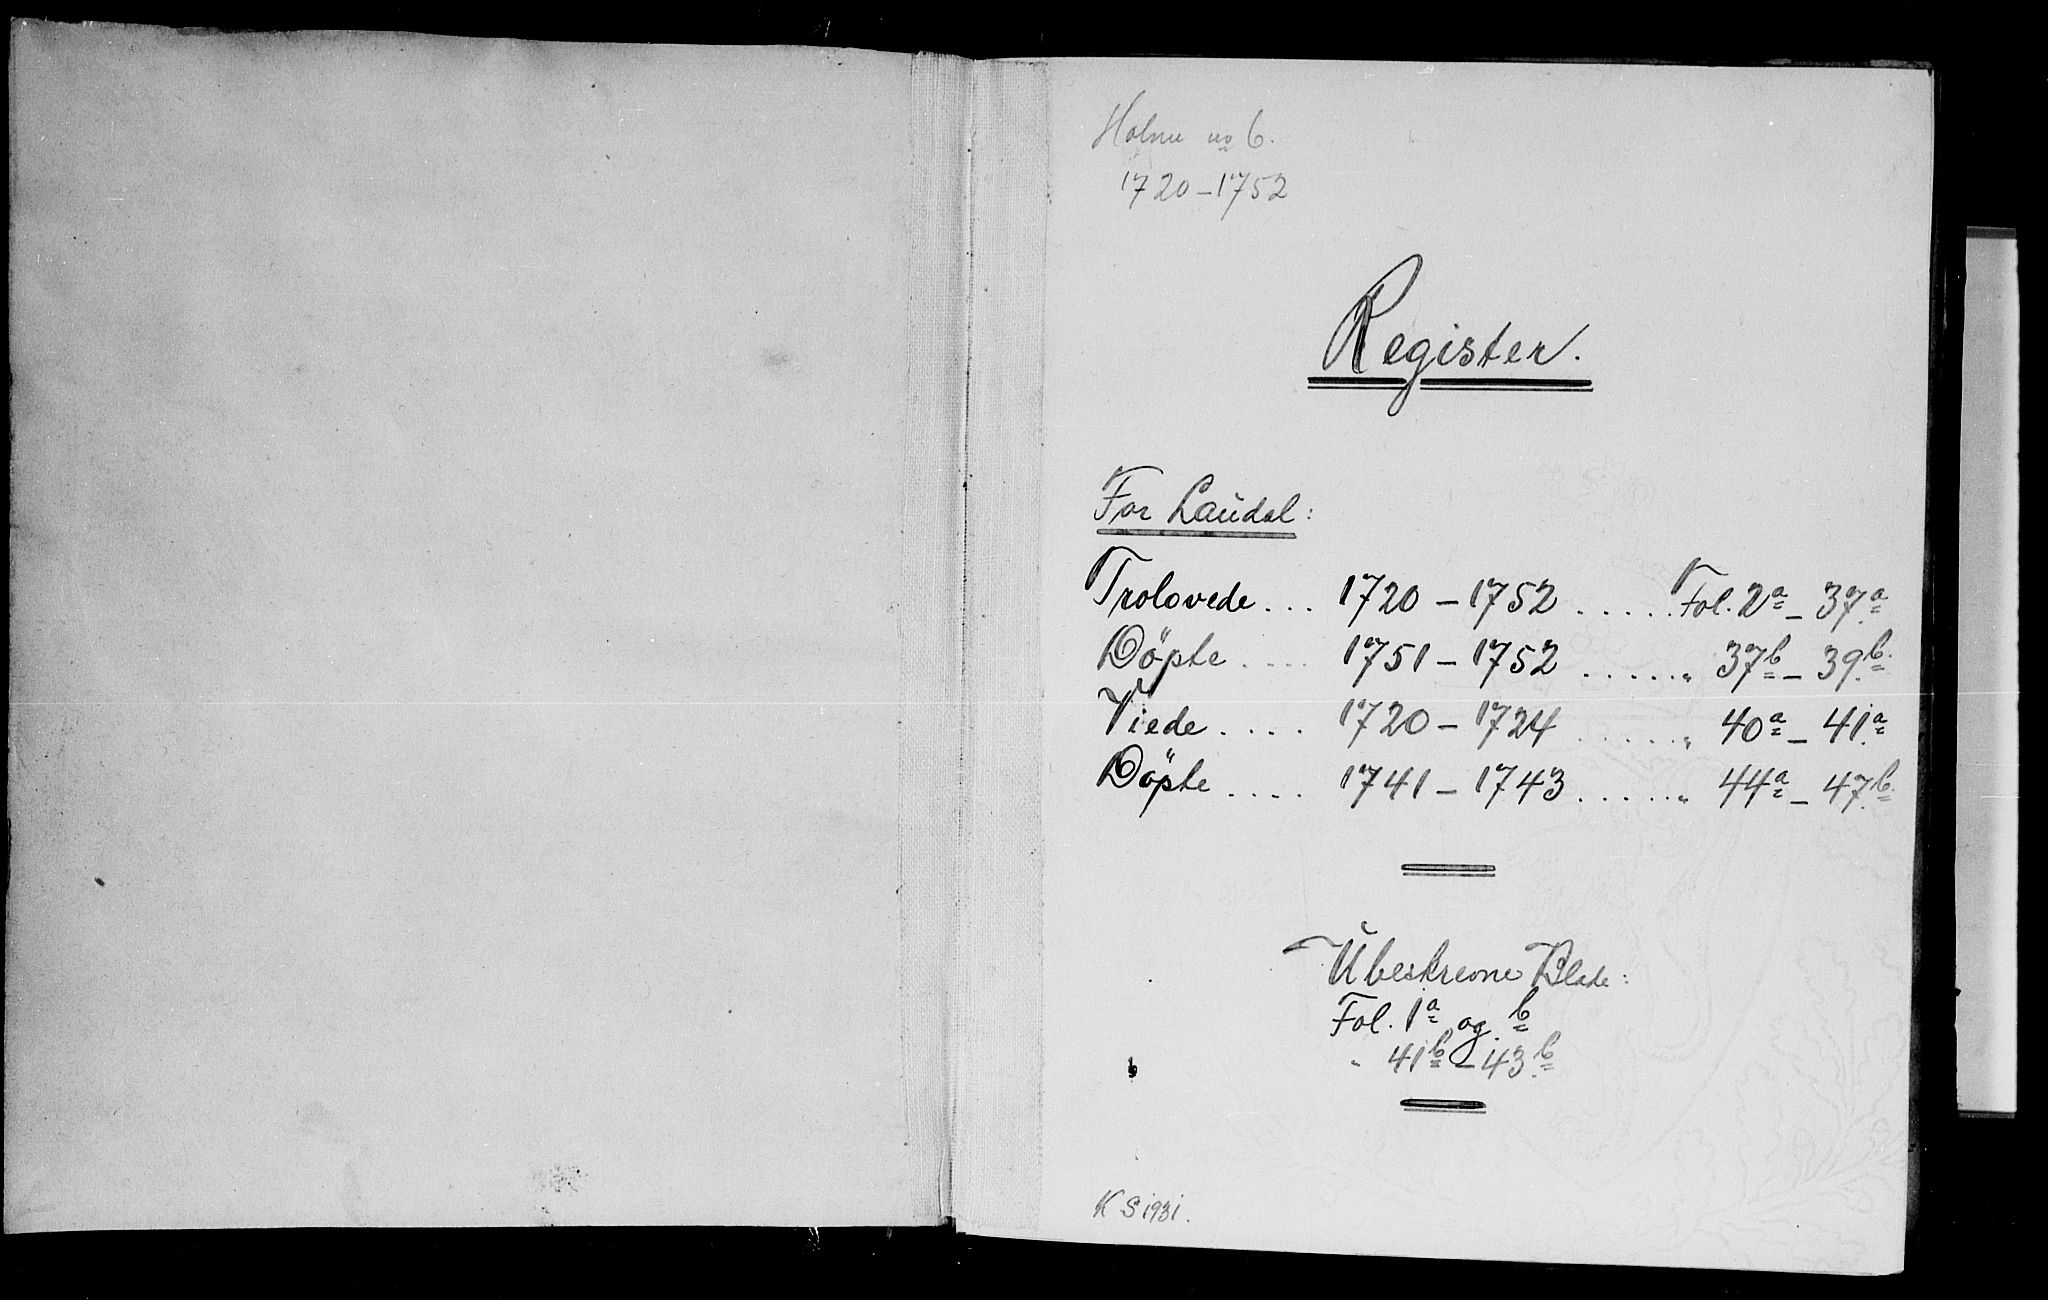 Holme no 6.
1720-1752
Register.
For Laudal:
Trolovede ... 1720 - 1752 ..... Fol. 2a - 37a
Döpte .... 1751 - 1752 ..... " 37b - 39b.
Viede .... 1720 - 1724 ..... " 40a - 41a
Döpte .... 1741 - 1743 ..... " 44a - 47b.
Ubeskrevne Blade:
Fol. 1a og b
" 41b - 43b
K S 1931.